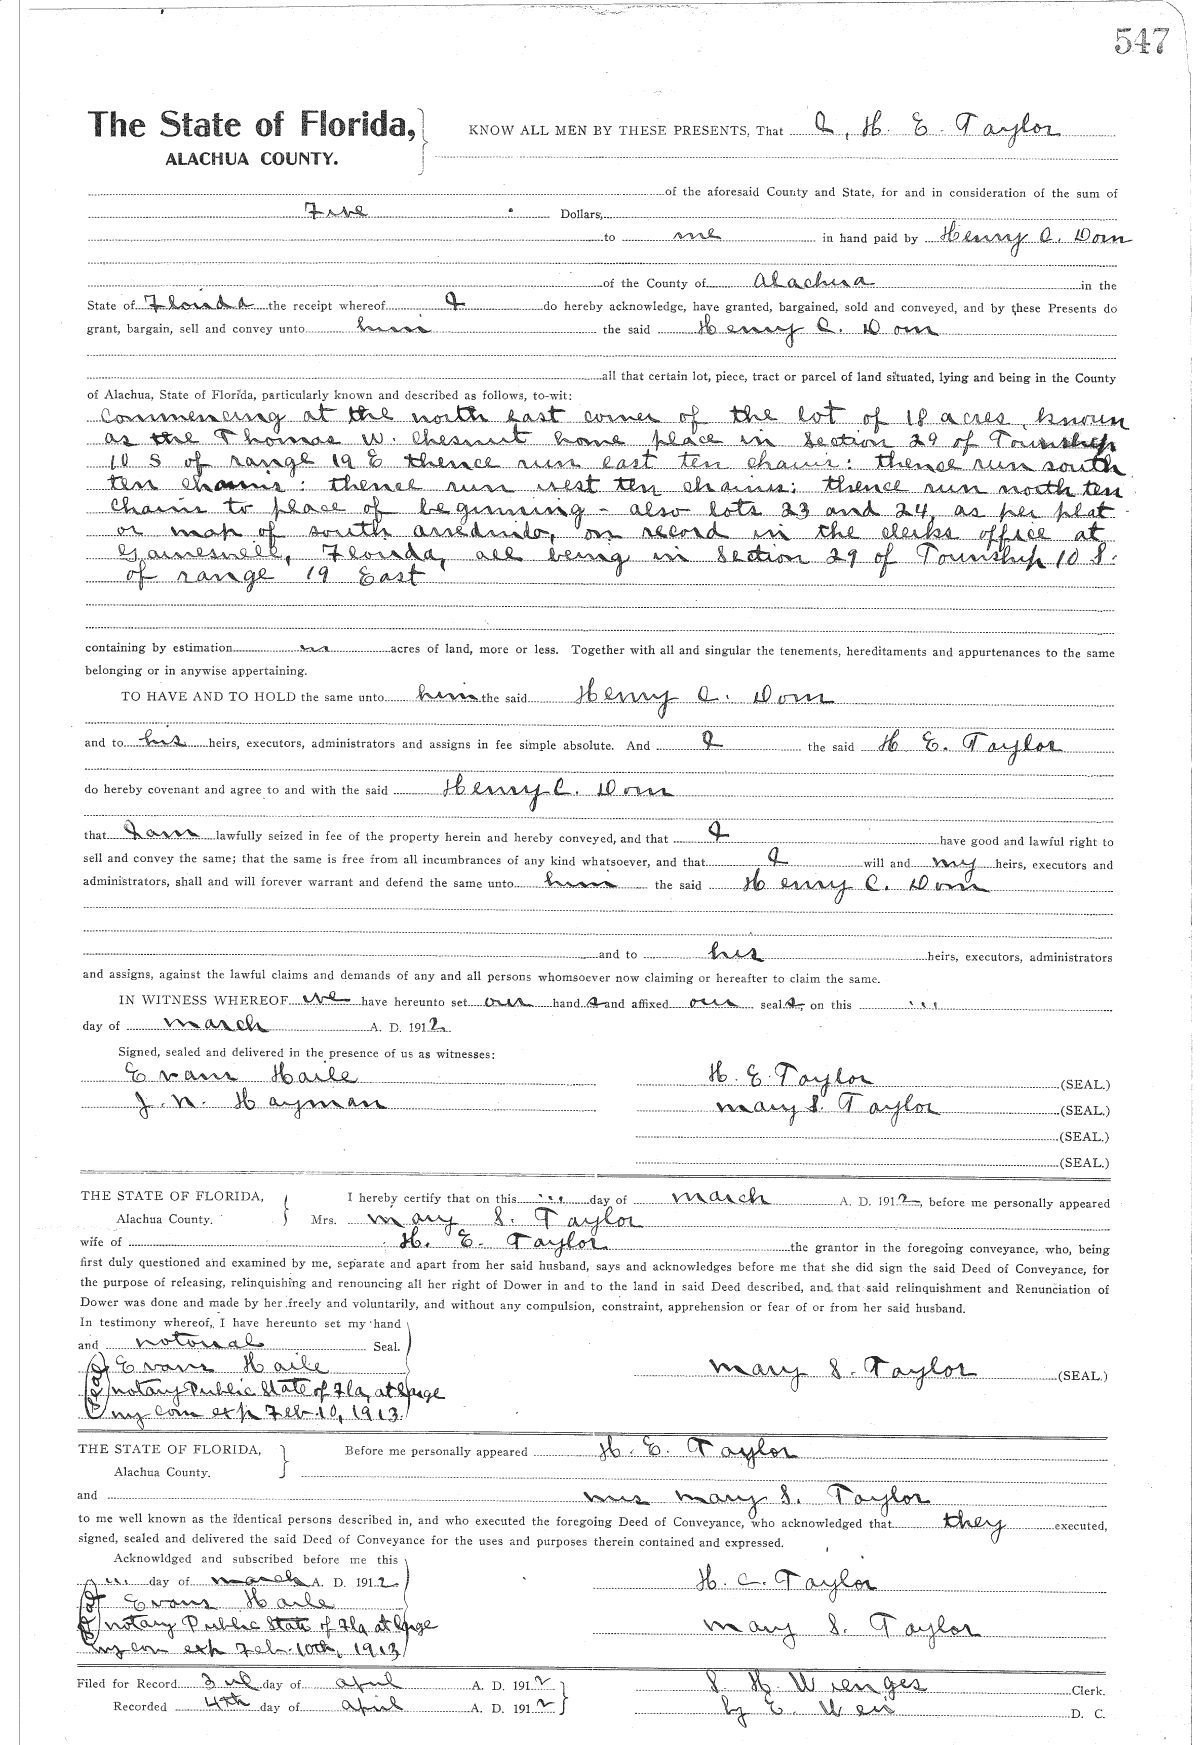 547
The State of Florida,
ALACHUA COUNTY.
KNOW ALL MEN BY THESE PRESENTS, That I, H. E. Taylor
of the aforesaid County and State, for and in consideration of the sum of
Five Dollars,
to me in hand paid by Henry C. Dorn
of the County of Alachua in the
State of Florida the receipt whereof I do hereby acknowledge, have granted, bargained, sold and conveyed, and by these Presents do
grant, bargain, sell and convey unto him the said Henry C. Dorn
all that certain lot, piece, tract or parcel of land situated, lying and being in the County
of Alachua, State of Florida, particularly known and described as follows, to-wit:
Commencing at the north east corner of the lot of 18 acres, known
as the Thomas W. Chesnut home place in Section 29 of Township
10 S of range 19 E thence run east ten chains: thence run south
ten chains: thence run west ten chains: thence run north ten
chains to place of beginning - also lots 23 and 24, as per plat
or map of south arredndo, on record in the clerks office at
Gainesvell, Florida, all being in Section 29 of Township 10 S.
of range 19 East
containing by estimation acres of land, more or less. Together with all and singular the tenements, hereditaments and appurtenances to the same
belonging or in anywise appertaining.
TO HAVE AND TO HOLD the same unto him the said Henry C. Dorn
and to his heirs, executors, administrators and assigns in fee simple absolute. And I the said H E. Taylor
do hereby covenant and agree to and with the said Henry C. Dorn
that I am lawfully seized in fee of the property herein and hereby conveyed, and that I have good and lawful right to
sell and convey the same; that the same is free from all incumbrances of any kind whatsoever, and that I will and my heirs, executors and
administrators, shall and will forever warrant and defend the same unto him the said Henry C. Dorn
and to his heirs, executors, administrators
and assigns, against the lawful claims and demands of any and all persons whomsoever now claiming or hereafter to claim the same.
IN WITNESS WHEREOF we have hereunto set our hand s and affixed our seal s, on this "'
day of March A. D. 1912.
Signed, sealed and delivered in the presence of us as witnesses:
Evans Haile H. E. Taylor (SEAL.)
J. N. Hayman Mary S. Taylor (SEAL.)
(SEAL.)
(SEAL.)
THE STATE OF FLORIDA, I hereby certify that on this "' day of March A. D. 1912, before me personally appeared
Alachua County. Mrs. Mary S. Taylor
wife of H. E. Taylor the grantor in the foregoing conveyance, who, being
first duly questioned and examined by me, separate and apart from her said husband, says and acknowledges before me that she did sign the said Deed of Conveyance, for
the purpose of releasing, relinquishing and renouncing all her right of Dower in and to the land in said Deed described, and that said relinquishment and Renunciation of
Dower was done and made by her freely and voluntarily, and without any compulsion, constraint, apprehension or fear of or from her said husband.
In testimony whereof, I have hereunto set my hand
and notorial Seal.
Evans Haile Mary S. Taylor (SEAL.)
Notary Public State of Fla, at large
my com exp Feb. 10, 1913.
THE STATE OF FLORIDA, Before me personally appeared H. E. Taylor
Alachua County.
and Mrs Mary S. Taylor
to me well known as the identical persons described in, and who executed the foregoing Deed of Conveyance, who acknowledged that they executed,
signed, sealed and delivered the said Deed of Conveyance for the uses and purposes therein contained and expressed.
Acknowldged and subscribed before me this
"' day of March A. D. 1912. H. C. Taylor
Evans Haile
Notary Public State of Fla, at large Mary S. Taylor
my com exp Feb. 10th, 1913
Filed for Record 3rd day of April A. D. 1912 S. H. Wienges Clerk.
Recorded 4th day of April A. D. 1912 by E. D. C.